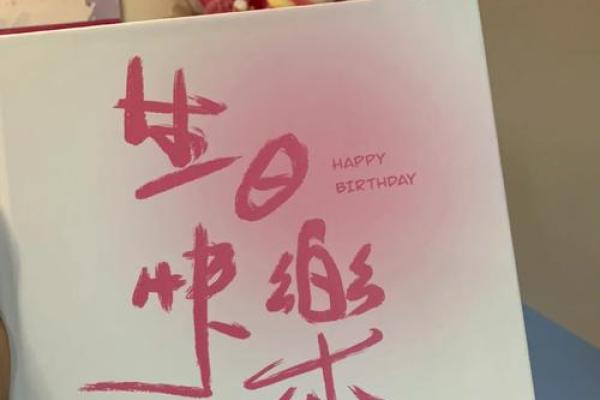 生日
HAPPY
BIRTHDAY
快樂